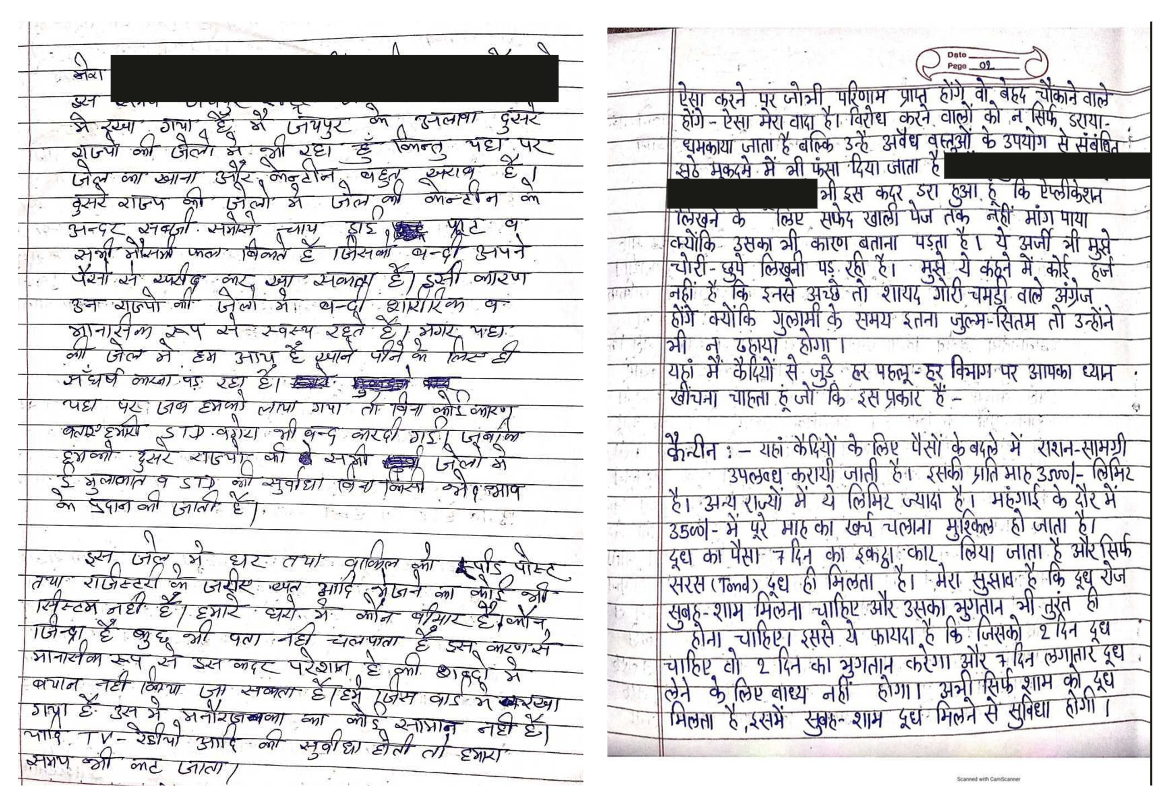 मेरा
इस समय जयपुर
मे रखा गया है, मै जयपुर के अलावा दुसरे
राज्यो की जेलो मे भी रहा हुँ किन्तु यहा पर
जेल का खाना और केन्टीन बहुत खराब है।
दुसरे राज्य की जेलो मे जेल की केन्टीन के
अन्दर सब्जी समोसे चाय
सभी मौसमी फल बिकते है जिसको बन्दी अपने
पैसो से खरीद कर खा सकता है। इसी कारण
उन राज्यो की जेलो मे बन्दी शारीरिक व
मानसिक रूप से स्वस्थ रहते है। मगर यहा
की जेल मे हम आए है खाने पीने के लिए ही
सँघर्ष करना पड रहा है।
यहा पर जब हमको लाया गया तो बिना कोई कारण
बताए हमारी STD वगैरा भी बन्द करदी गई। जबकि
हमको दुसरे राज्यो की सभी जेलो मे
ई मुलाकात व STD की सुवीधा बिना किसी भेदभाव
के प्रदान की जाती है।
इस जेल मे घर तथा वकिल को स्पीड पोस्ट
तथा रजिस्टरी के जरीए खत आदि भेजने का कोई भी
सिस्टम नही है। हमारे घरो मे कौन बीमार है, कौन
जिन्दा है कुछ भी पता नही चलपाता है इस कारण से
मानसिक रूप से इस कदर परेशान है की शब्दो मे
बयान नही किया जा सकता है। हमे जिस वार्ड मे रखा
गया है उस मे मनोरंजन का कोई सामान नही है।
यदि TV- रेडीयो आदि की सुवीधा होती तो हमारा
समय भी कट जाता।
Date
Page 02
ऐसा करने पर जोभी परिणाम प्राप्त होंगे वो बेहद चौंकाने वाले
होंगे - ऐसा मेरा वादा है। विरोध करने वालों को न सिर्फ डराया-
धमकाया जाता है बल्कि उन्हें अवैध वस्तुओं के उपयोग से संबंधित
झूठे मुकदमे में भी फंसा दिया जाता है
भी इस कदर डरा हुआ हूं कि ऐप्लीकेशन
लिखने के लिए सफेद खाली पेज तक नहीं मांग पाया
क्योंकि उसका भी कारण बताना पड़ता है। ये अर्जी भी मुझे
चोरी-छुपे लिखनी पड़ रही है। मुझे ये कहने में कोई हर्ज
नहीं है कि इनसे अच्छे तो शायद गोरी चमड़ी वाले अंग्रेज
होंगे क्योंकि गुलामी के समय इतना जुल्म-सितम तो उन्होंने
भी न ढहाया होगा।
यहां मैं कैदियों से जुड़े हर पहलू-हर विभाग पर आपका ध्यान
खींचना चाहता हूं जो कि इस प्रकार है -
कैन्टीन : - यहां कैदियों के लिए पैसों के बदले में राशन-सामग्री
उपलब्ध करायी जाती है। इसकी प्रति माह 3500/- लिमिट
है। अन्य राज्यों में ये लिमिट ज्यादा है। महंगाई के दौर में
3500/- में पूरे माह का खर्च चलाना मुश्किल हो जाता है।
दूध का पैसा 7 दिन का इकट्ठा काट लिया जाता है और सिर्फ
सरस (Tond) दूध ही मिलता है। मेरा सुझाव है कि दूध रोज
सुबह-शाम मिलना चाहिए और उसका भुगतान भी तुरंत ही
होना चाहिए। इससे ये फायदा है कि जिसको 2 दिन दूध
चाहिए वो 2 दिन का भुगतान करेगा और 7 दिन लगातार दूध
लेने के लिए बाध्य नहीं होगा। अभी सिर्फ शाम को दूध
मिलता है, इसमें सुबह-शाम दूध मिलने से सुविधा होगी।
Scanned with CamScanner